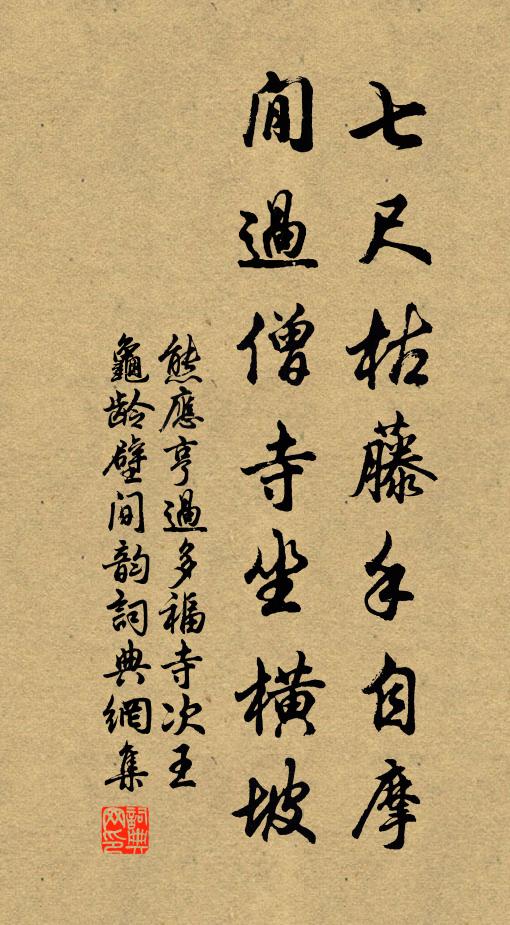 七尺枯藤手自摩
閒過僧寺坐橫坡
熊應亨過多福寺次王
龜齡壁間韵詞典網集
詞典网印